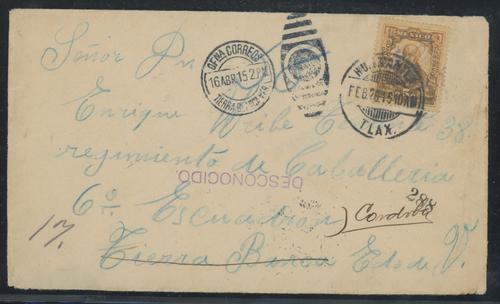 OFNA. CORREOS
16 ABR. 15 2 PM
TIERRA BLANCA VER.
MEXICO
HUAMANTLA
FEB 26 15 10 AM
TLAX.
Señor
Enrique Uribe 38.
regimiento de Caballeria
DESCONOCIDO.
6º Escuadron
285
Cordoba
17.
Tierra Blanca Edo de V.